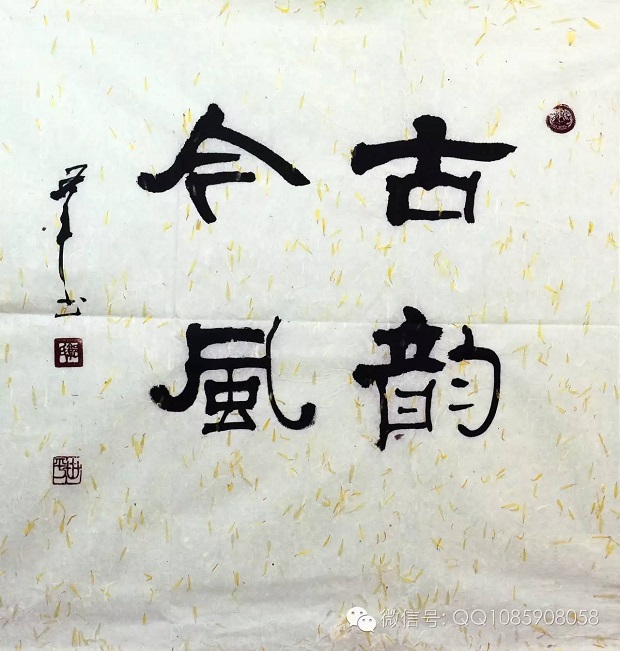 古韵
今風
世平书
微信号: QQ1085908058